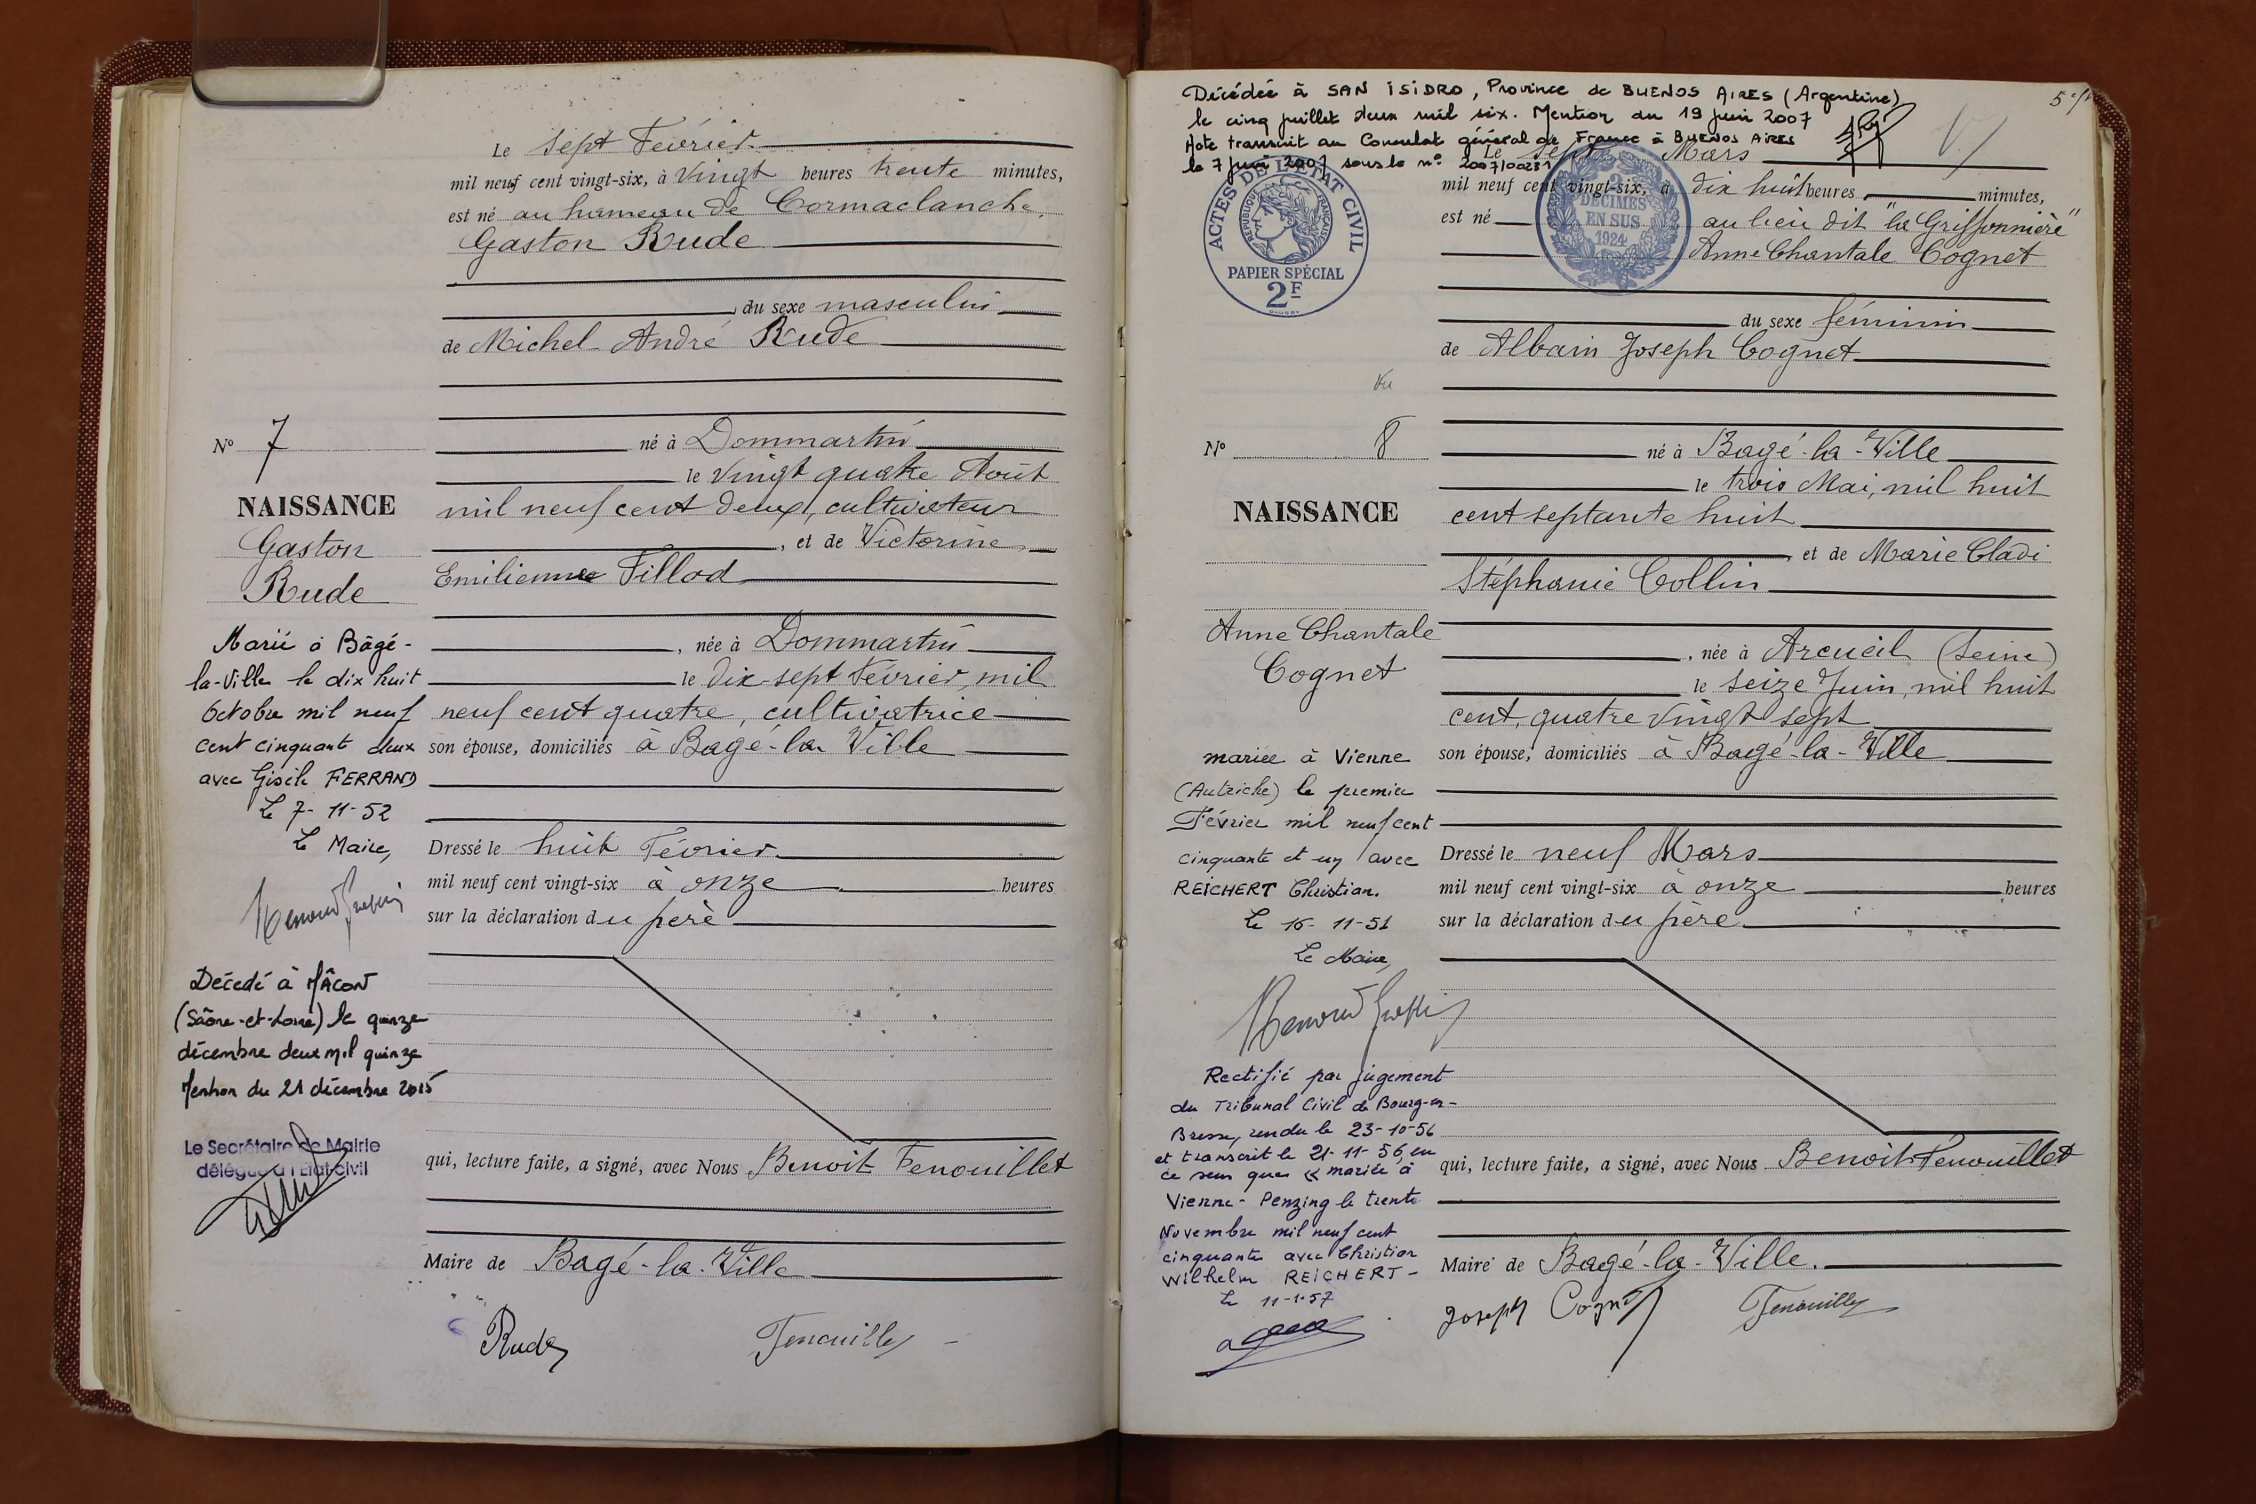 Le sept Février
mil neuf cent vingt-six, à Vingt heures trente minutes,
est né au hameau de Cormaclanche,
Gaston Rude
, du sexe masculin
de Michel André Rude
né à Dommartin
le vingt quatre Août
mil neuf cent deux, cultivateur
, et de Victorine
Emilienne Fillod
, née à Dommartin
le dix-sept Février, mil
neuf cent quatre, cultivatrice
son épouse, domiciliés à Bagé-la Ville
Dressé le huit Février
mil neuf cent vingt-six à onze heures
sur la déclaration du père
qui, lecture faite, a signé, avec Nous Benoît Fenouillet
Maire de Bagé-la-Ville
Rude Fenouillet
N° 7
NAISSANCE
Gaston
Rude
Marié à Bâgé-
la-Ville le dix huit
Octobre mil neuf
cent cinquante deux
avec Gisèle FERRAND
Le 7-11-52
Le Maire,
Décédé à MÂCON
(Saône-et-Loire) le quinze
décembre deux mil quinze
Mention du 21 décembre 2015
Le Secrétaire de Mairie
délégué à l'Etat-civil
Décédée à SAN ISIDRO, Province de BUENOS AIRES (Argentine)
le cinq juillet deux mil six. Mention du 19 juin 2007
Acte transcrit au Consulat général de France à BUENOS AIRES
le 7 juin 2007 sous le n° 2007/00231
ACTES DE L'ETAT CIVIL
REPUBLIQUE FRANCAISE
PAPIER SPÉCIAL
2F
2
DECIMES
EN SUS
1924
Le sept Mars
mil neuf cent vingt-six, à dix huit heures minutes,
est né au lieu dit "la Griffonnière"
Anne Chantale Cognet
du sexe féminin
de Albain Joseph Cognet
né à Bagé-la-Ville
le trois Mai, mil huit
cent septante huit
et de Marie Cladi
Stéphanie Collin
, née à Arcueil (Seine)
le seize Juin, mil huit
cent, quatre vingt sept
son épouse, domiciliés à Bagé-la-Ville
Dressé le neuf Mars
mil neuf cent vingt-six à onze heures
sur la déclaration du père
qui, lecture faite, a signé, avec Nous Benoît Fenouillet
Maire de Bagé-la-Ville.
Joseph Cognet Fenouillet
Vu
N° 8
NAISSANCE
Anne Chantale
Cognet
mariée à Vienne
(Autriche) le premier
Février mil neuf cent
cinquante et un avec
REICHERT Christian.
Le 16-11-51
Le Maire,
Rectifié par jugement
du Tribunal Civil de Bourg-en-
Bresse, rendu le 23-10-56
et transcrit le 21-11-56, en
ce sens que: « mariée à
Vienne - Penzing le trente
Novembre mil neuf cent
cinquante avec Christian
Wilhelm REICHERT -
Le 11-1-57